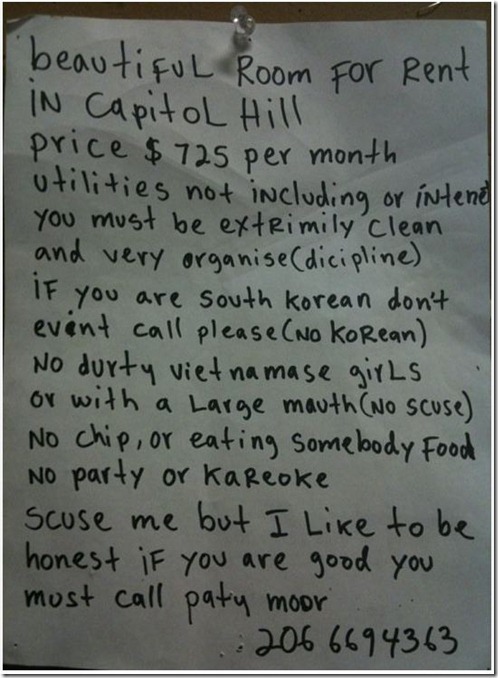 beautiful Room For Rent
in Capitol Hill
price $ 725 per month
utilities not including or intene
you must be extrimily clean
and very organise (dicipline)
if you are south korean don't
event call please (No KoRean)
No durty vietnamase girLs
or with a Large mauth (No scuse)
No chip, or eating somebody Food
No party or KaReoke
scuse me but I Like to be
honest iF you are good you
must call paty moor
206 6694363